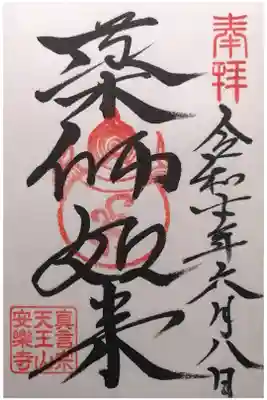 奉拝
令和七年六月八日
薬師如来
真言宗
天王山
安樂寺